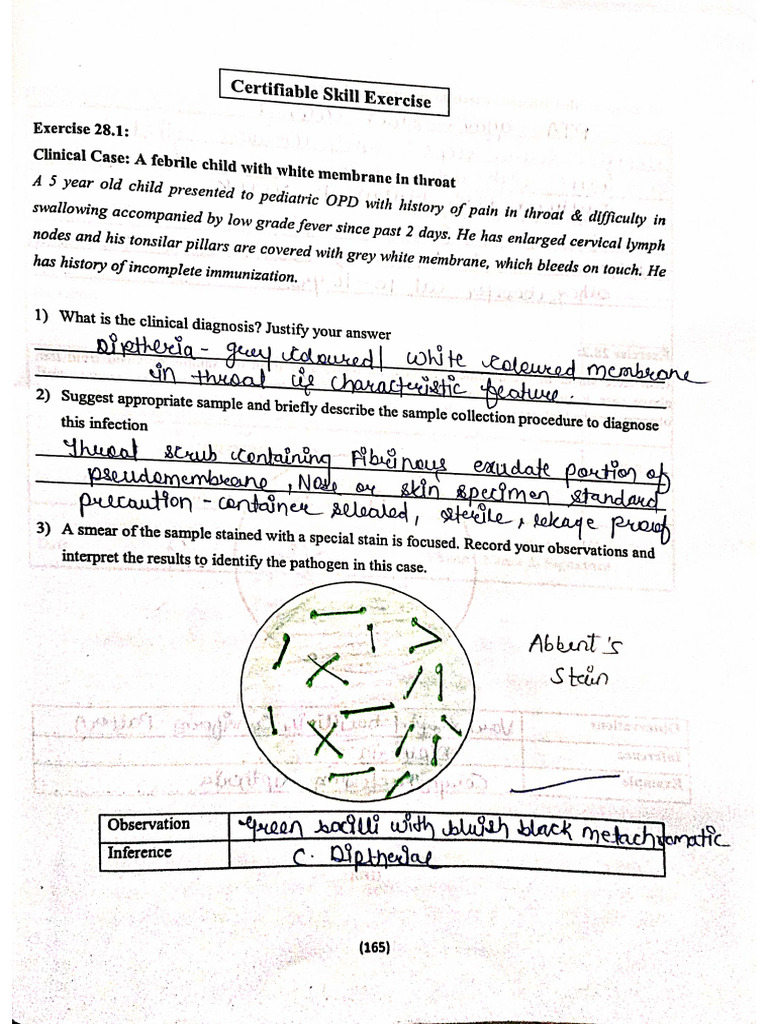 Certifiable Skill Exercise
Exercise 28.1:
Clinical Case: A febrile child with white membrane in throat
A 5 year old child presented to pediatric OPD with history of pain in throat & difficulty in
swallowing accompanied by low grade fever since past 2 days. He has enlarged cervical lymph
nodes and his tonsilar pillars are covered with grey white membrane, which bleeds on touch. He
has history of incomplete immunization.
1) What is the clinical diagnosis? Justify your answer
Diptheria - grey coloured/ white coloured membrane
in throat is characteristic feature.
2) Suggest appropriate sample and briefly describe the sample collection procedure to diagnose
this infection
Throat scrub containing Fibrinous exudate portion of
pseudomembrane, Nose or skin specimen standard
precaution - container selealed, sterile, lekage proof
3) A smear of the sample stained with a special stain is focused. Record your observations and
interpret the results to identify the pathogen in this case.
Abbert's
Stain
Observation Green bacilli with bluish black metachromatic
Inference C. Diptheriae
(165)